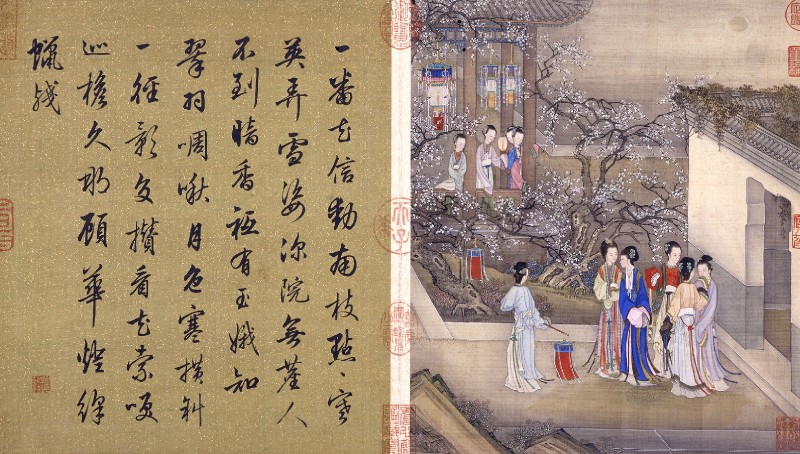 一番花信動南枝點〻寒
英弄雪姿深院無塵人
不到暗香祗有玉娥知
翠羽啁啾月色寒橫斜
一徑影多攢看花索咲
巡檐久那顧華燈絳
蠟殘